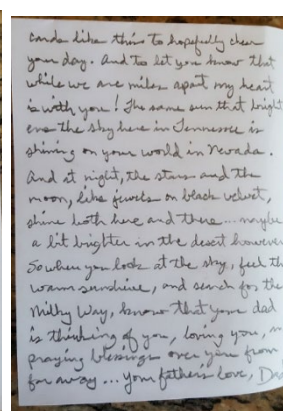 cards like this to hopefully cheer
your day. And to let you know that
while we are miles apart my heart
is with you! The same sun that bright
ens the sky here in Tennessee is
shining on your world in Nevada.
And at night, the stars and the
moon, like jewels on black velvet,
shine both here and there... maybe
a bit brighter in the desert however
So when you look at the sky, feel the
warm sunshine, and search for the
Milky Way, know that your dad
is thinking of you, loving you, an
praying blessings over you from
far away... your fathers love, Dad